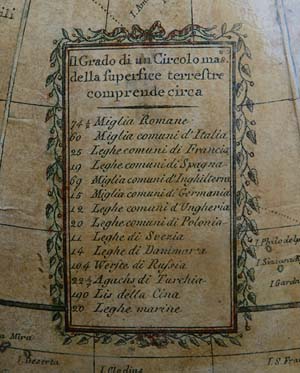 Il Grado di un Circolo mas.
della superfice terrestre
comprende circa
74½ Miglia Romane
60 Miglia comuni d'Italia
25 Leghe comuni di Francia
19 Leghe comuni di Spagna
69 Miglia comuni d'Inghilterra
15 Miglia comuni di Germania
12 Leghe comuni d'Ungheria
20 Leghe comuni di Polonia
11 Leghe di Svezia
14 Leghe di Danimarca
104 Werste di Russia
22½ Agachs di Turchia
190 Lis della Cina
20 Leghe marine
I. Philo
I. Gard
Mira
I. Deserta
I. Cladina
I. S. Fran